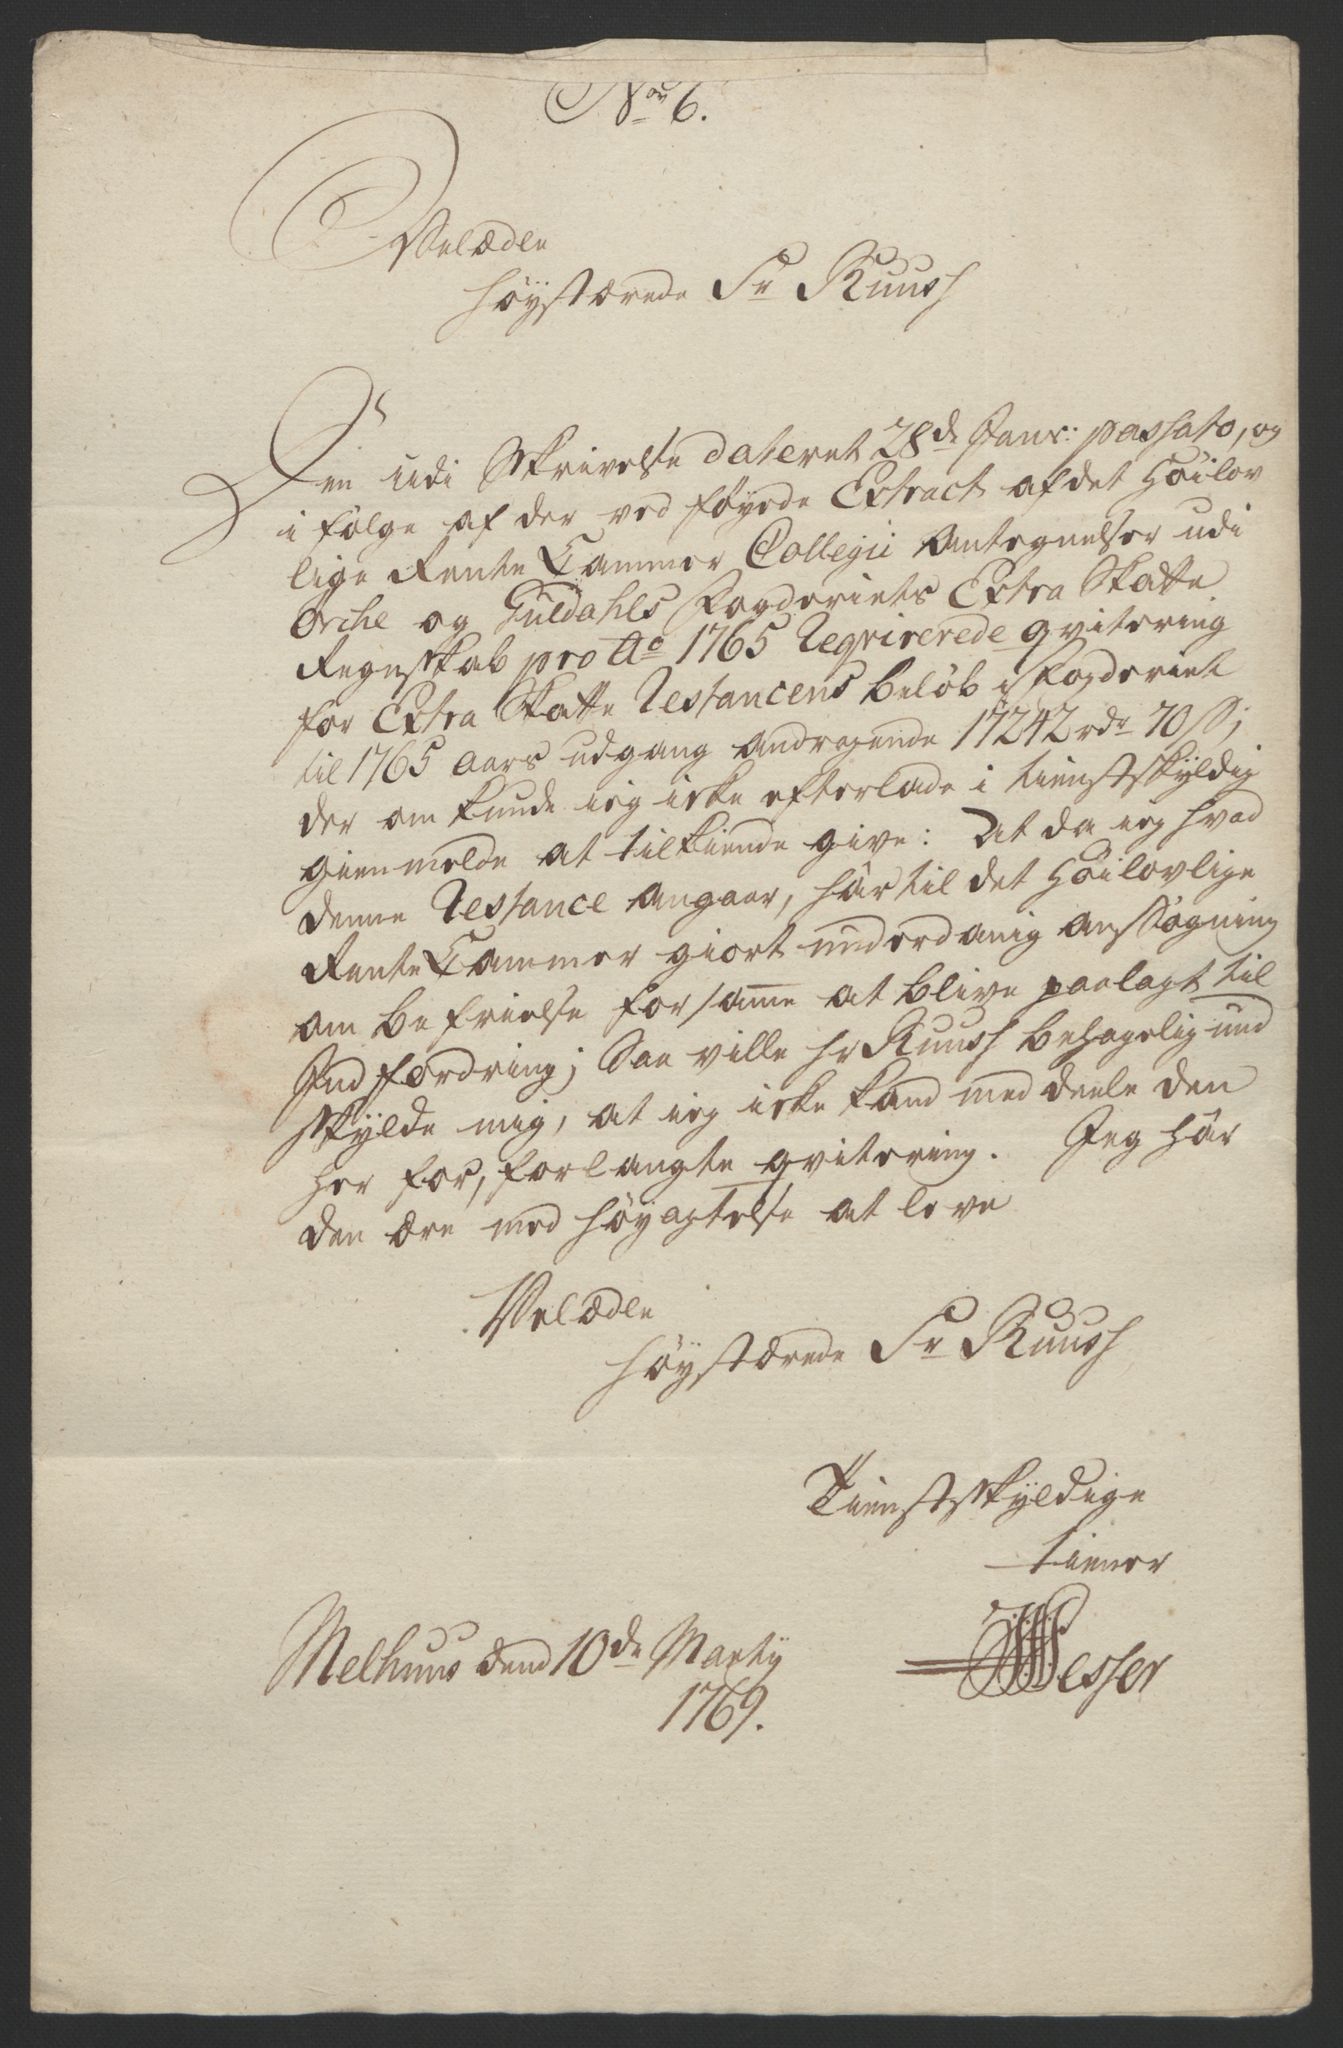 No 6.
Velædle
Høystærede Hr Kuush
Den udi Skrivelse dateret 28de Janv: passato, og
i følge af der ved føyede Extract af det Høilov
lige Rente Cammer Collegii Antegnelser udi
Orche og Guldahls Fogderiets Extra Skatte
Regnskab pro Ao 1765 Reqvirerede qvitering
for Extra Skatte Restancens beløb i Fogderiet
til 1765 Aars udgang andragende 17242 rdr 70 s;
der om kunde ieg icke efterlade i tienstskyldig
gienmelde at tilkiende give: At da ieg hvad
denne Restance angaar, hår til det Høilovlige
Rente Cammer giort underdanig ansøgning
om befrielse for same at blive paalagt til
Indfordring; Saa ville hr Kuush behagelig und
skylde mig, at ieg icke kand meddeele den
her for, forlangte qvitering. Jeg hår
den ære med høyagtelse at leve
Velædle
Høystærede Hr Kuush
Tienstskyldige
tiener
Melhuus dend 10de Marty
Wesser
1769.